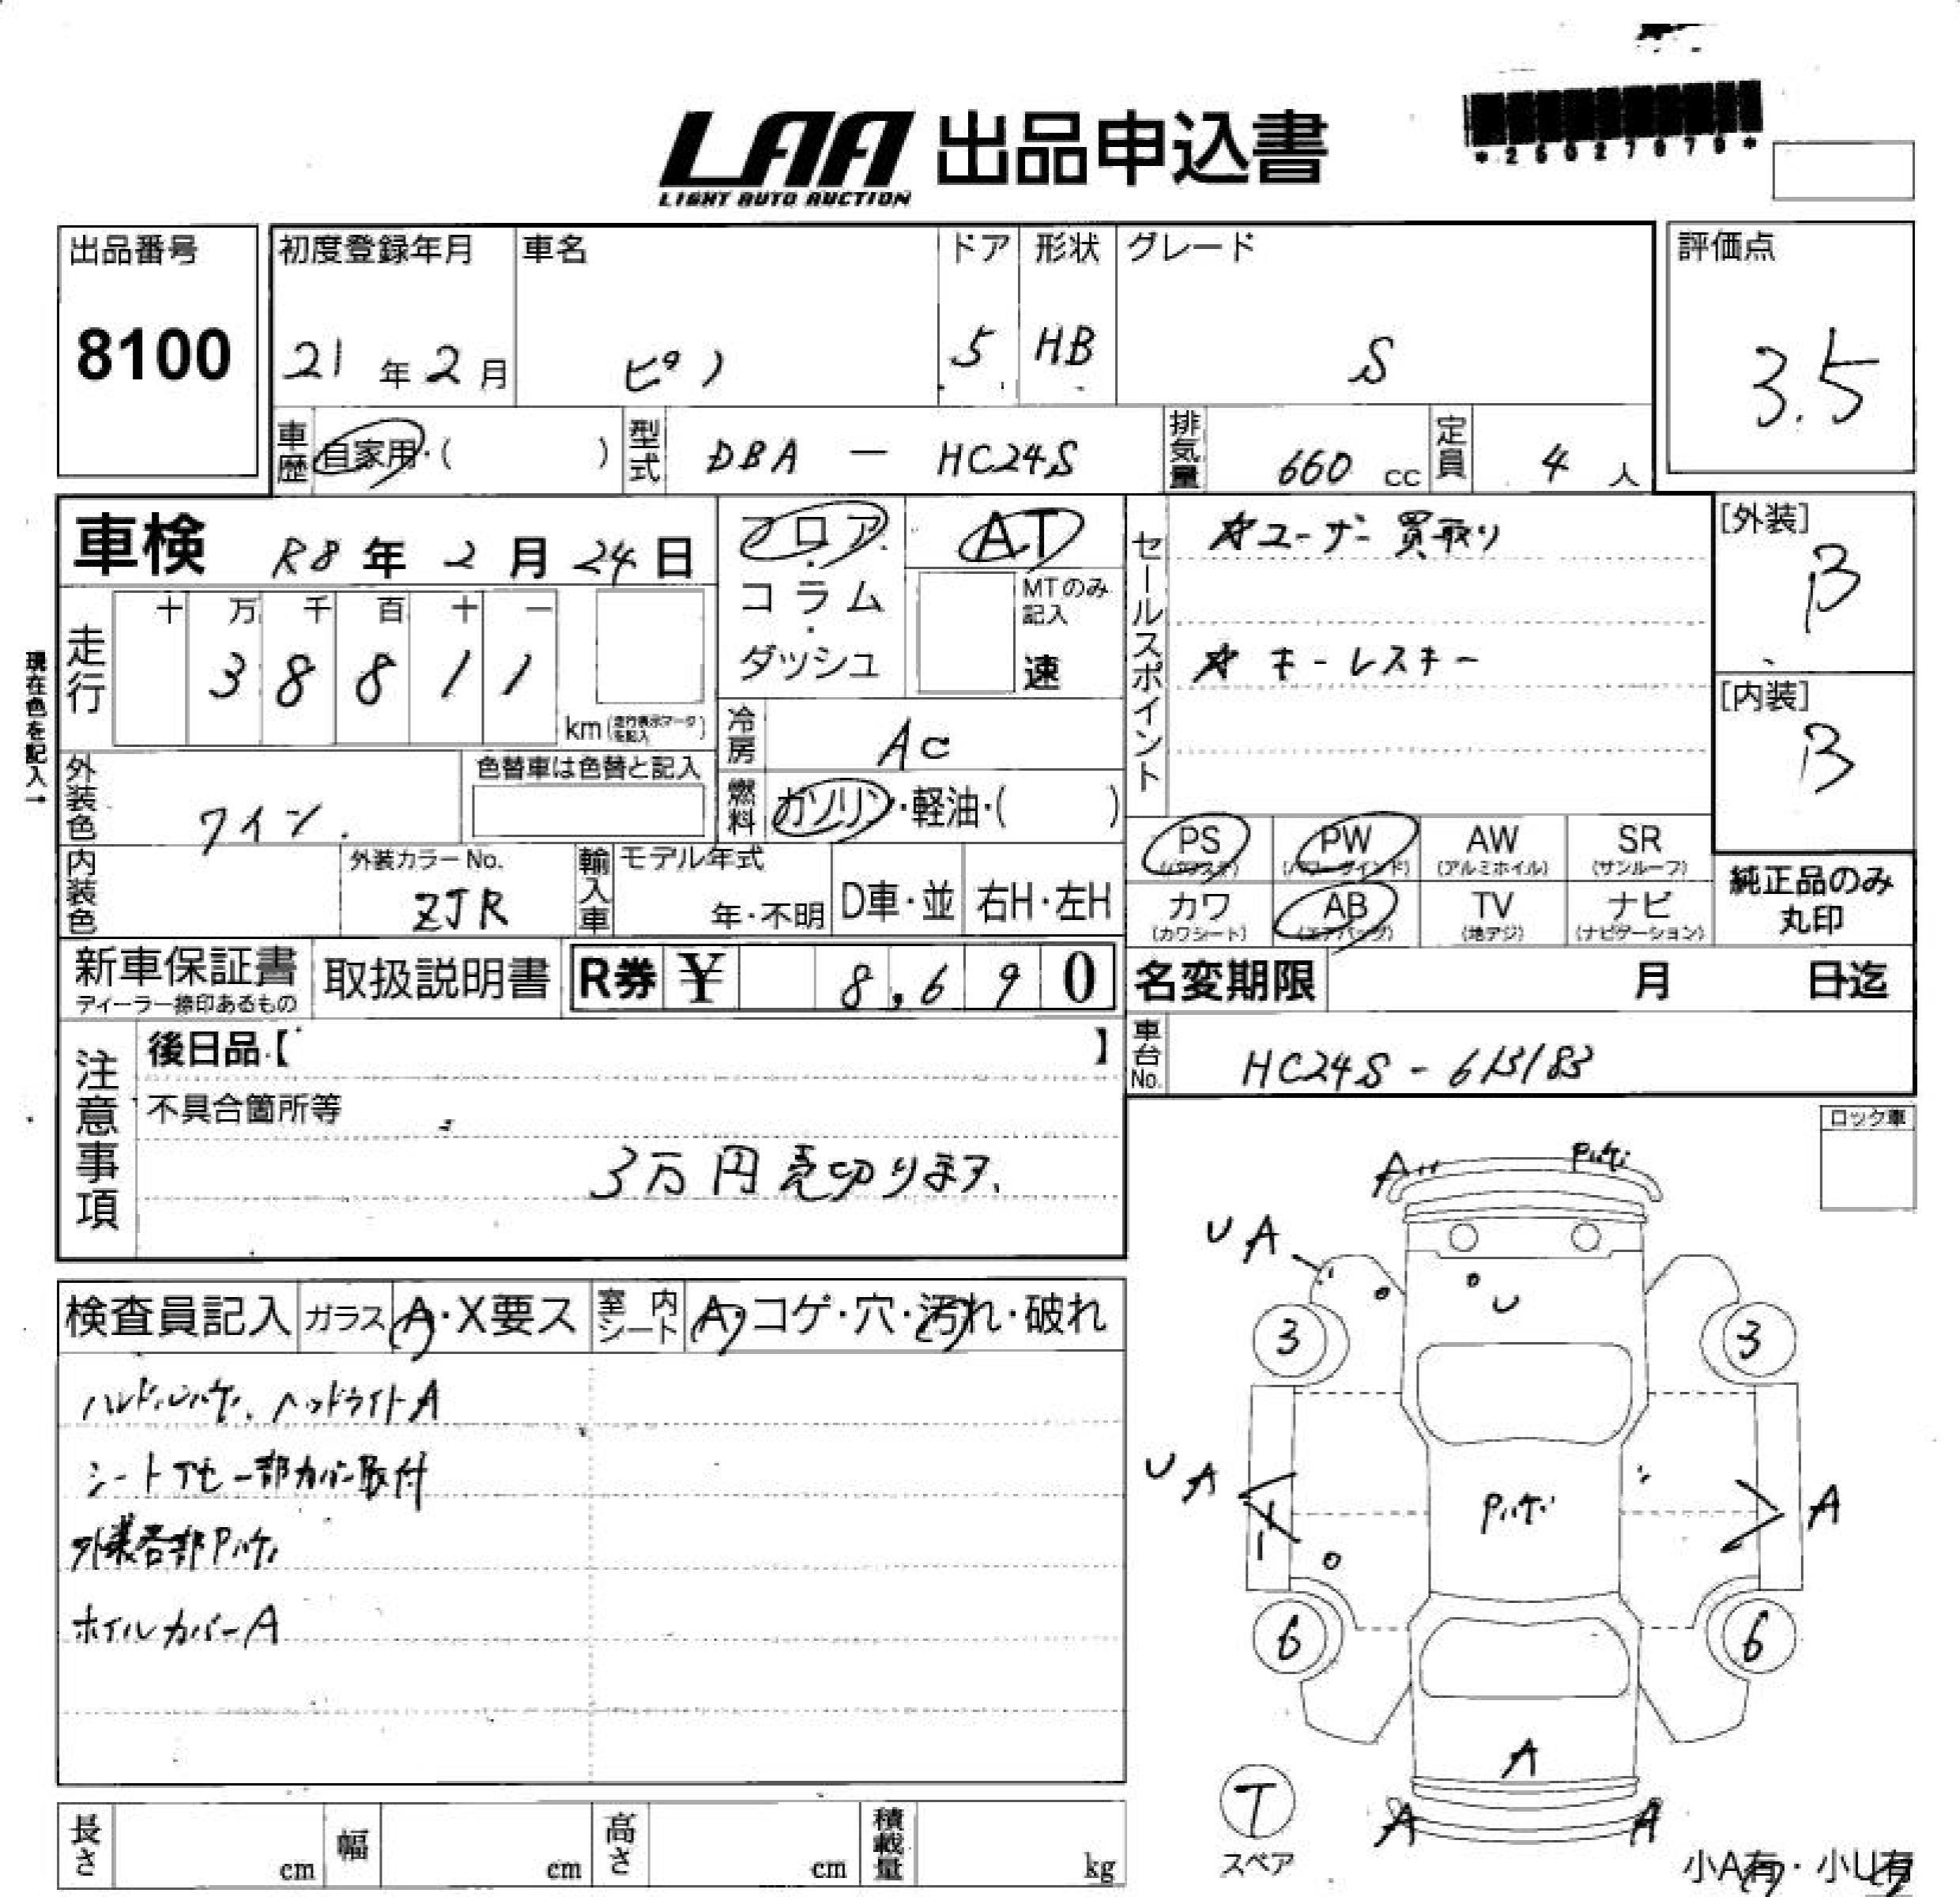 LAA 出品申込書
LIGHT AUTO AUCTION
出品番号
8100
初度登録年月
21年2月
車名
ピノ
ドア
5
形状
HB
グレード
S
評価点
3.5
車歴
自家用・( )
型式
DBA - HC24S
排気量
660 cc
定員
4 人
車検 R8年2月24日
フロア・コラム・ダッシュ
AT
MTのみ記入
速
セールスポイント
☆ユーザー買取り
☆キーレスキー
[外装]
B
[内装]
B
現在色を記入→
走行
十 万 千 百 十 一
3 8 8 1 1
km(走行表示マークを記入)
冷房
AC
燃料
ガソリン・軽油・( )
外装色
ワイン.
色替車は色替と記入
内装色
外装カラーNo.
ZJR
輸入車
モデル年式
年・不明
D車・並
右H・左H
PS
(パワステ)
PW
(パワーウインド)
AW
(アルミホイル)
SR
(サンルーフ)
カワ
(カワシート)
AB
(エアバッグ)
TV
(地デジ)
ナビ
(ナビゲーション)
純正品のみ
丸印
新車保証書
ディーラー捺印あるもの
取扱説明書
R券 ¥ 8,690
名変期限 月 日迄
車台No.
HC24S - 613183
注意事項
後日品【 】
不具合箇所等
3万円売切ります.
ロック車
検査員記入
ガラス A・X要ス
室内シート A・コゲ・穴・汚れ・破れ
ヘッドライトA
一部カバー取付
外装各部
ホイルカバーA
A
U A
U
3
3
U A
A
6
6
A
A
A
T
スペア
小A有・小U有
長さ cm
幅 cm
高さ cm
積載量 kg